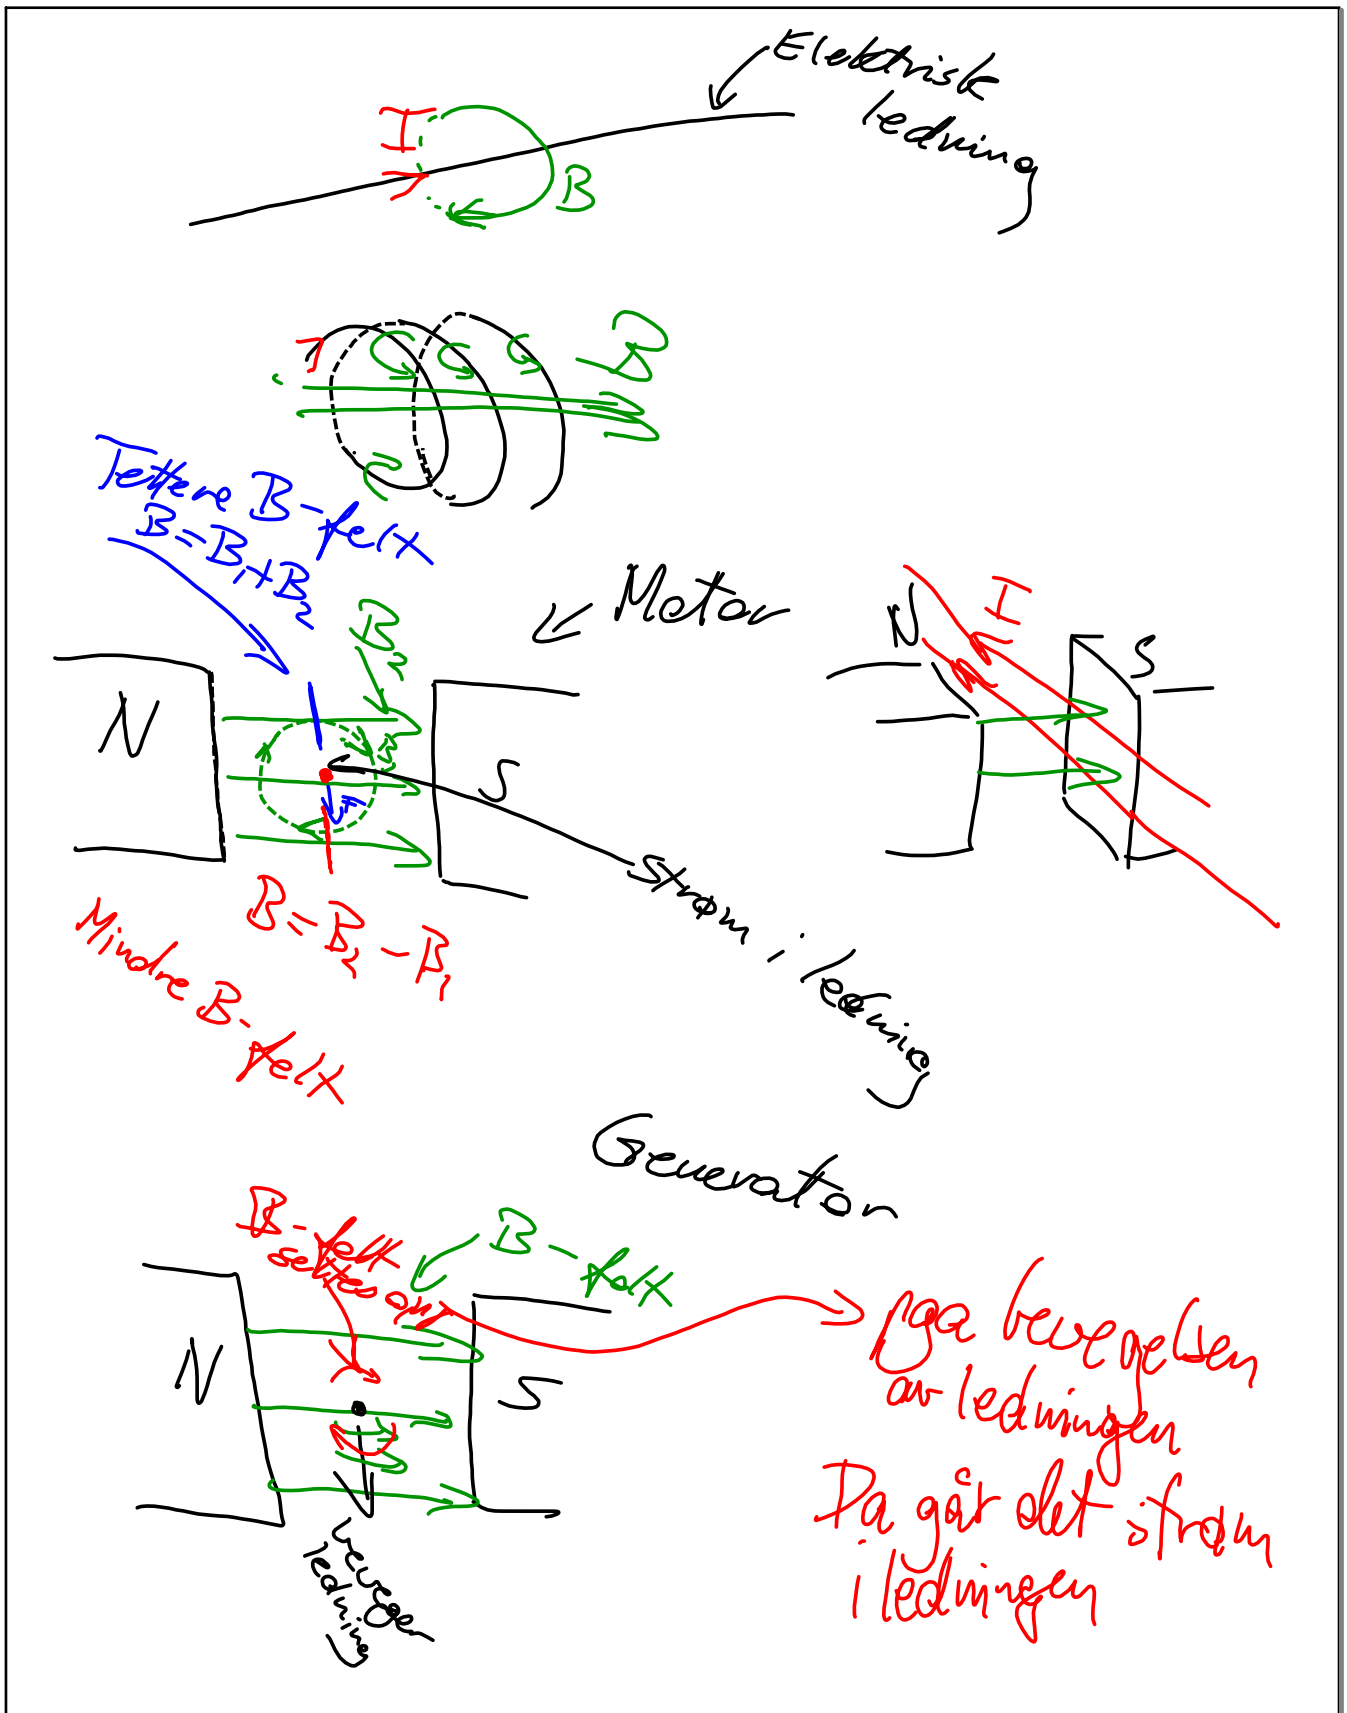 Elektrisk
ledning
I
B
B
Tettere B-felt
B=B₁+B₂
Motor
B₂
N
B₁
F
S
N
I
S
strøm i ledning
B=B₂-B₁
Mindre B-felt
Generator
B-felt
settes opp
B-felt
pga bevegelsen
av ledningen
N
S
Da går det strøm
i ledningen
beveger
ledning